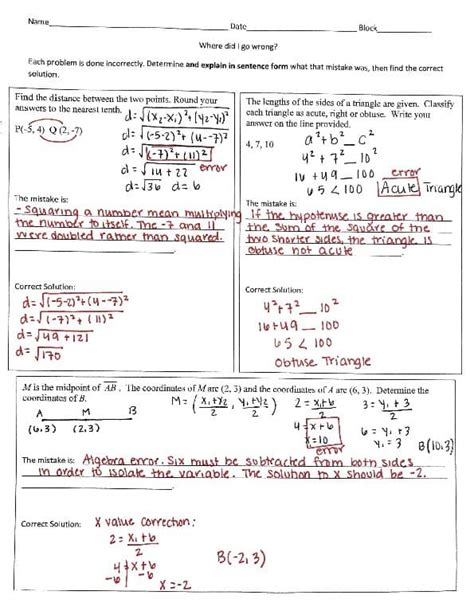 Name Date Block
Where did I go wrong?
Each problem is done incorrectly. Determine and explain in sentence form what that mistake was, then find the correct
solution.
Find the distance between the two points. Round your
answers to the nearest tenth.
P(-5, 4) Q (2, -7)
d=√(x₂-x₁)²+(y₂-y₁)²
d=√(-5-2)²+(4--7)²
d=√(-7)²+(11)²
d=√14+22 error
d=√36 d=6
The mistake is:
- Squaring a number mean multiplying
the number to itself. The -7 and 11
were doubled rather than squared.
Correct Solution:
d=√(-5-2)²+(4--7)²
d=√(-7)²+(11)²
d=√49+121
d=√170
The lengths of the sides of a triangle are given. Classify
each triangle as acute, right or obtuse. Write your
answer on the line provided.
4, 7, 10
a²+b² _ c²
4²+7² _ 10²
16+49 _ 100 error
65<100 Acute Triangle
The mistake is:
If the hypotenuse is greater than
the sum of the square of the
two shorter sides, the triangle is
obtuse not acute
Correct Solution:
4²+7² _ 10²
16+49 _ 100
65<100
Obtuse Triangle
M is the midpoint of AB. The coordinates of M are (2, 3) and the coordinates of A are (6, 3). Determine the
coordinates of B.
A M B
(6,3) (2,3)
M=(x₁+x₂/2, y₁+y₂/2)
2=x₁+6/2
4=x+6
x=10
error
3=y₁+3/2
6=y₁+3
y₁=3 B(10,3)
The mistake is: Algebra error. Six must be subtracted from both sides
in order to isolate the variable. The solution to X should be -2.
Correct Solution: X value correction:
2=x₁+6/2
4=x+6
-6 -6
x=-2
B(-2,3)